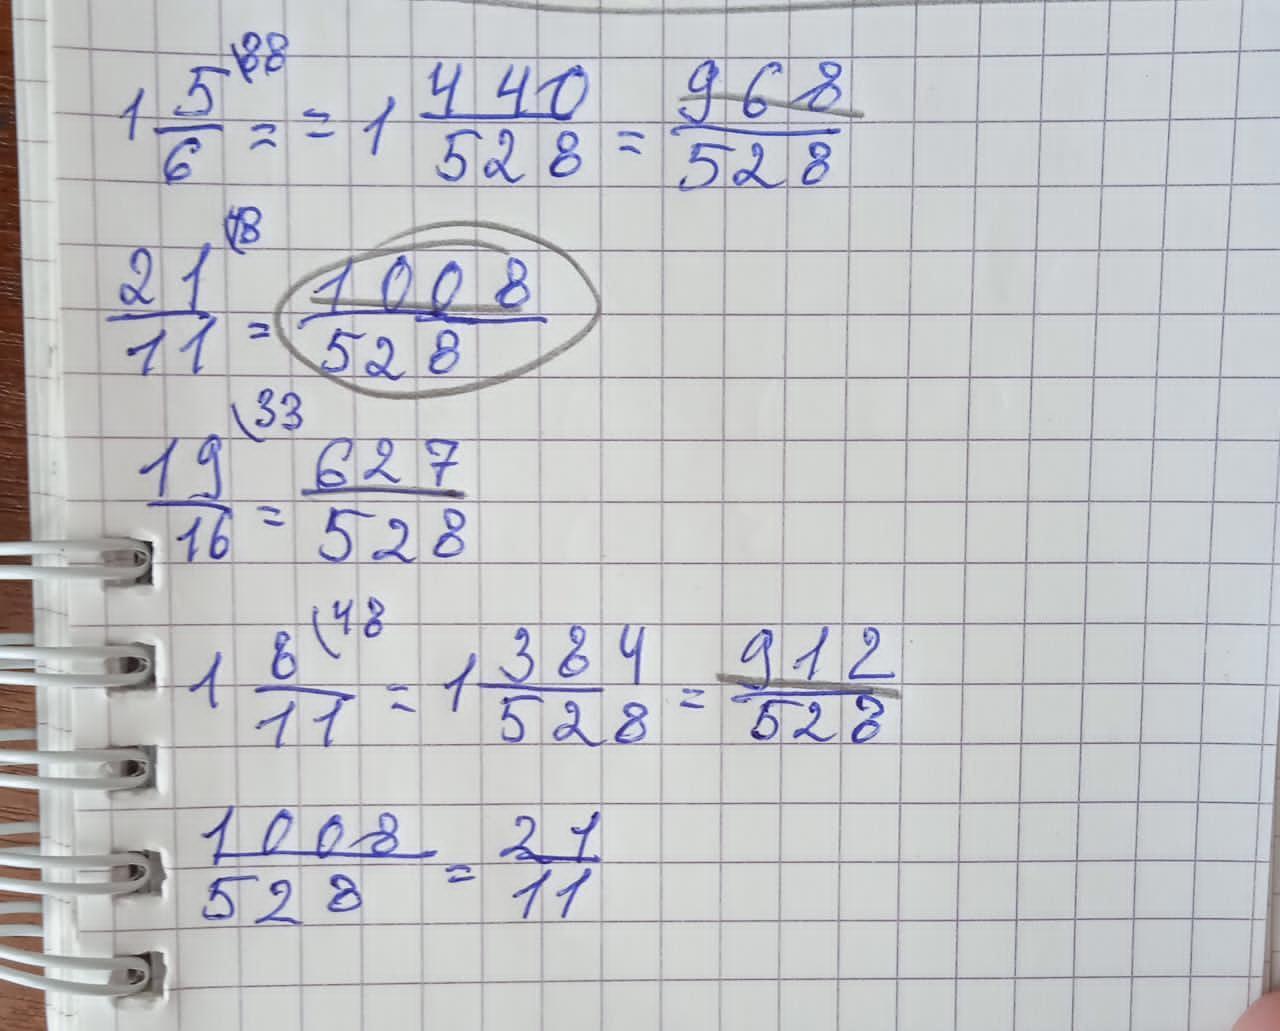 1 5/6 \88 = = 1 440/528 = 968/528
21/11 \48 = 1008/528
19/16 \33 = 627/528
1 8/11 \48 = 1 384/528 = 912/528
1008/528 = 21/11